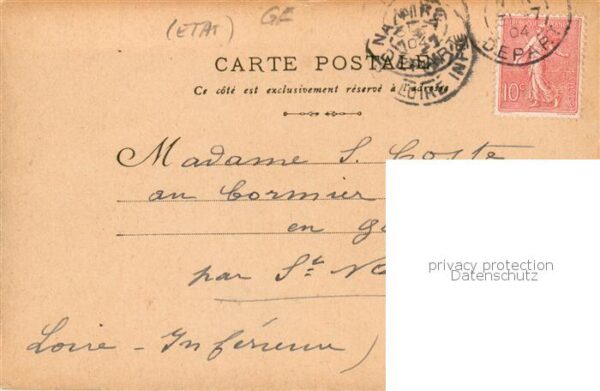 (ETAT) GE
CARTE POSTALE
Ce côté est exclusivement réservé à l'adresse
NAZAIRE
04
LOIRE INF
04
DEPART
10c
Madame S. Coste
au Cormier
en
par St
Loire-Inférieure)
privacy protection
Datenschutz